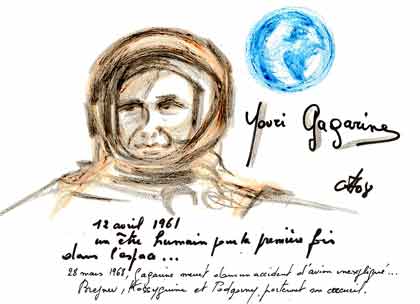 Youri Gagarine
12 avril 1961
un être humain pour la première fois
dans l'espace...
28 mars 1968, Gagarine meurt dans un accident d'avion inexpliqué...
Brejnev, Kossyguine et Podgorny porteront son cercueil.